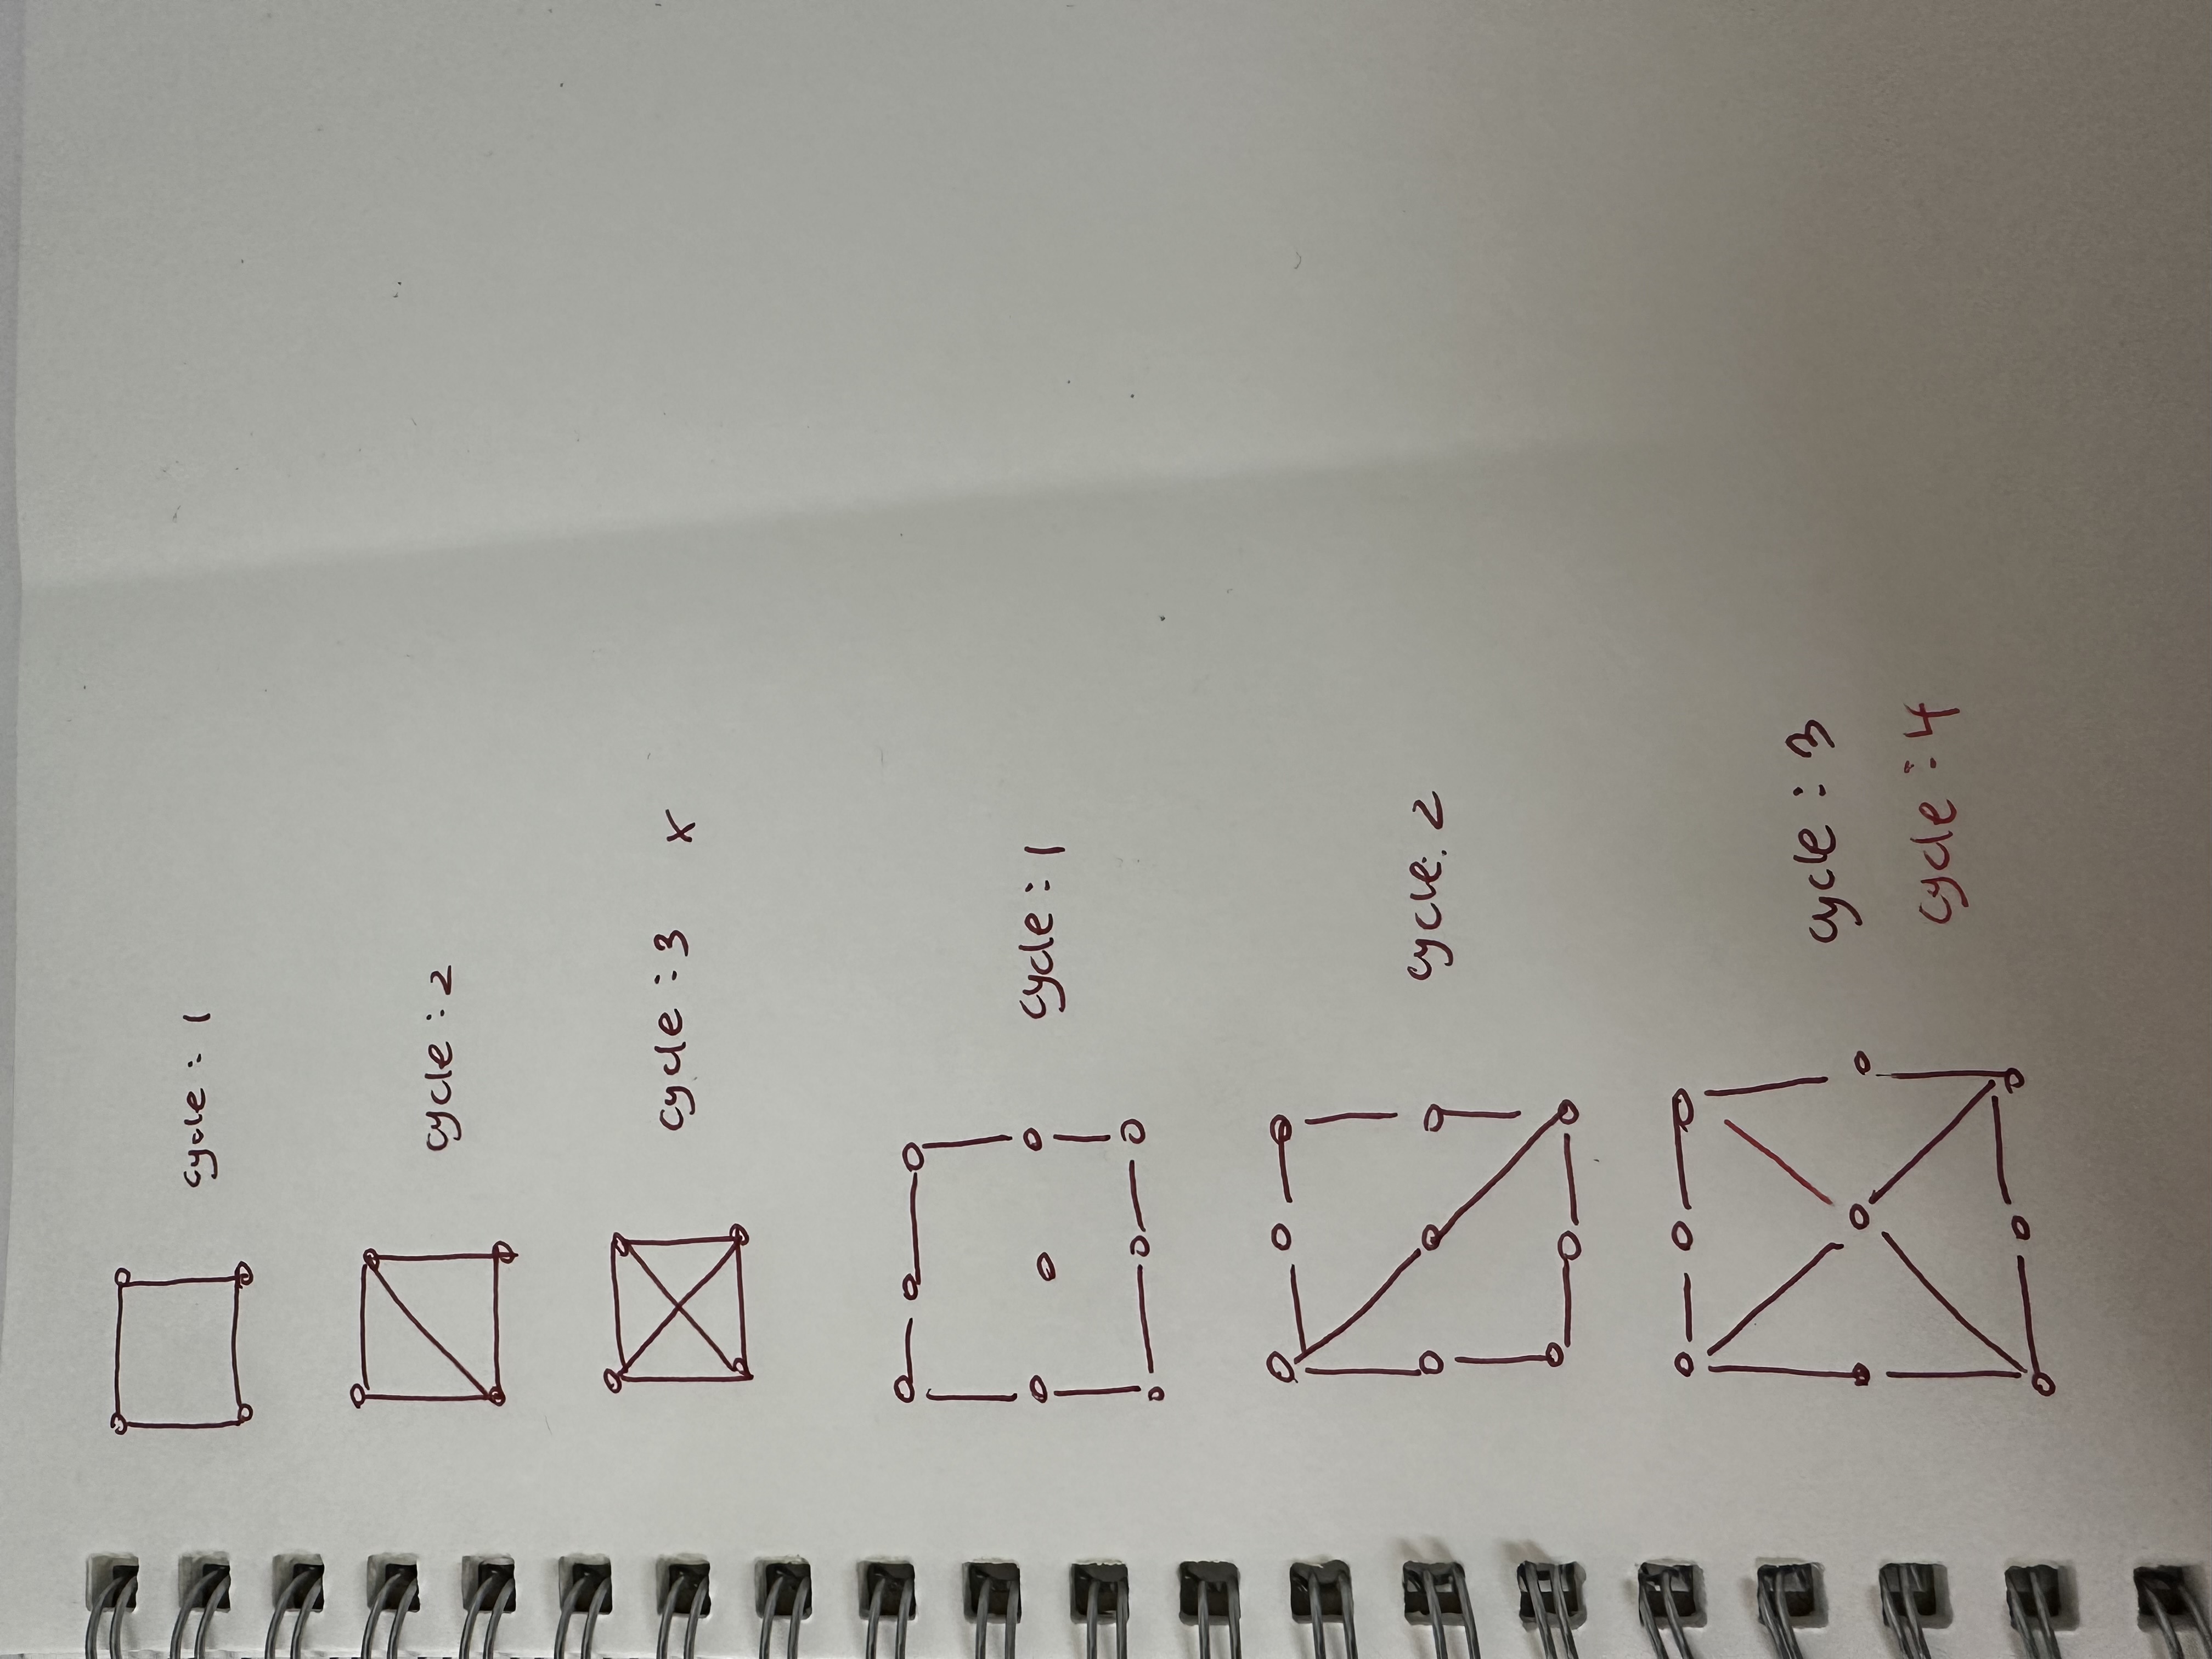 cycle : 1
cycle : 2
cycle : 3 x
cycle : 1
cycle. 2
cycle : 3
cycle : 4